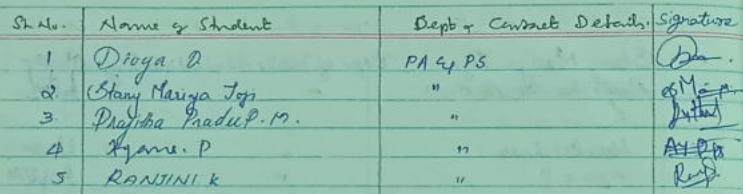 Sl. No. Name of Student Dept & Contact Details. Signature
1 Divya D PA & PS
2 Stany Mariya Joji "
3. Prajitha Pradeep. M. "
4 P "
5 RANJINI. K "